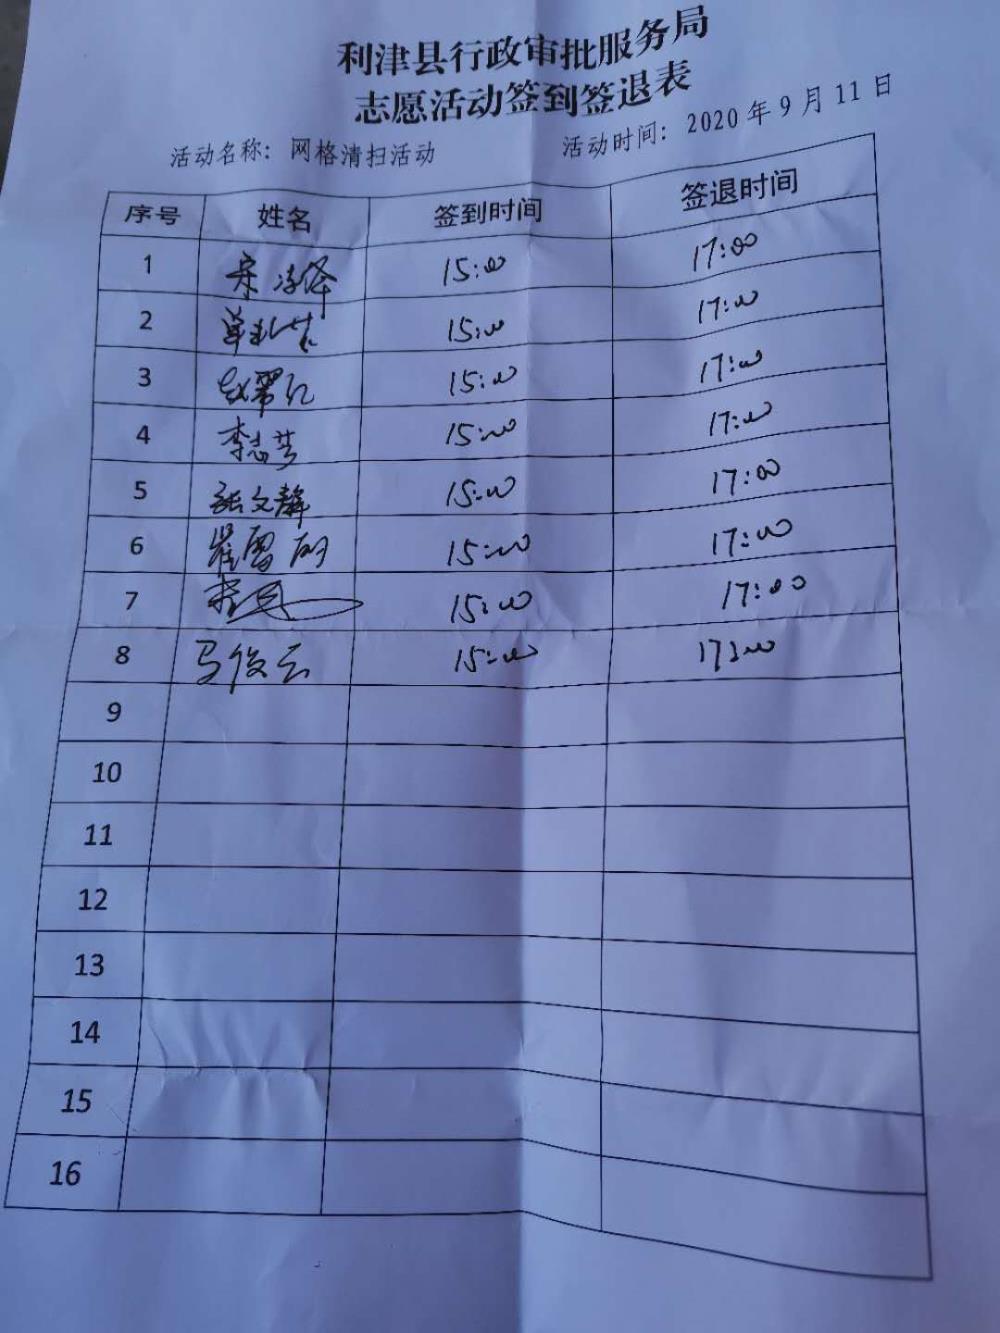 利津县行政审批服务局
志愿活动签到签退表
活动名称：网格清扫活动 活动时间：2020年9月11日
序号 姓名 签到时间 签退时间
1 15:00 17:00
2 15:00 17:00
3 15:00 17:00
4 李志芳 15:00 17:00
5 张文静 15:00 17:00
6 15:00 17:00
7 15:00 17:00
8 马俊云 15:00 17:00
9
10
11
12
13
14
15
16